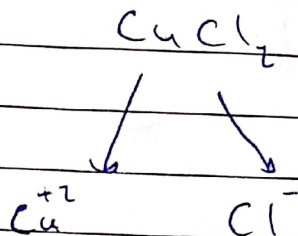 CuCl₂
Cu⁺² Cl⁻